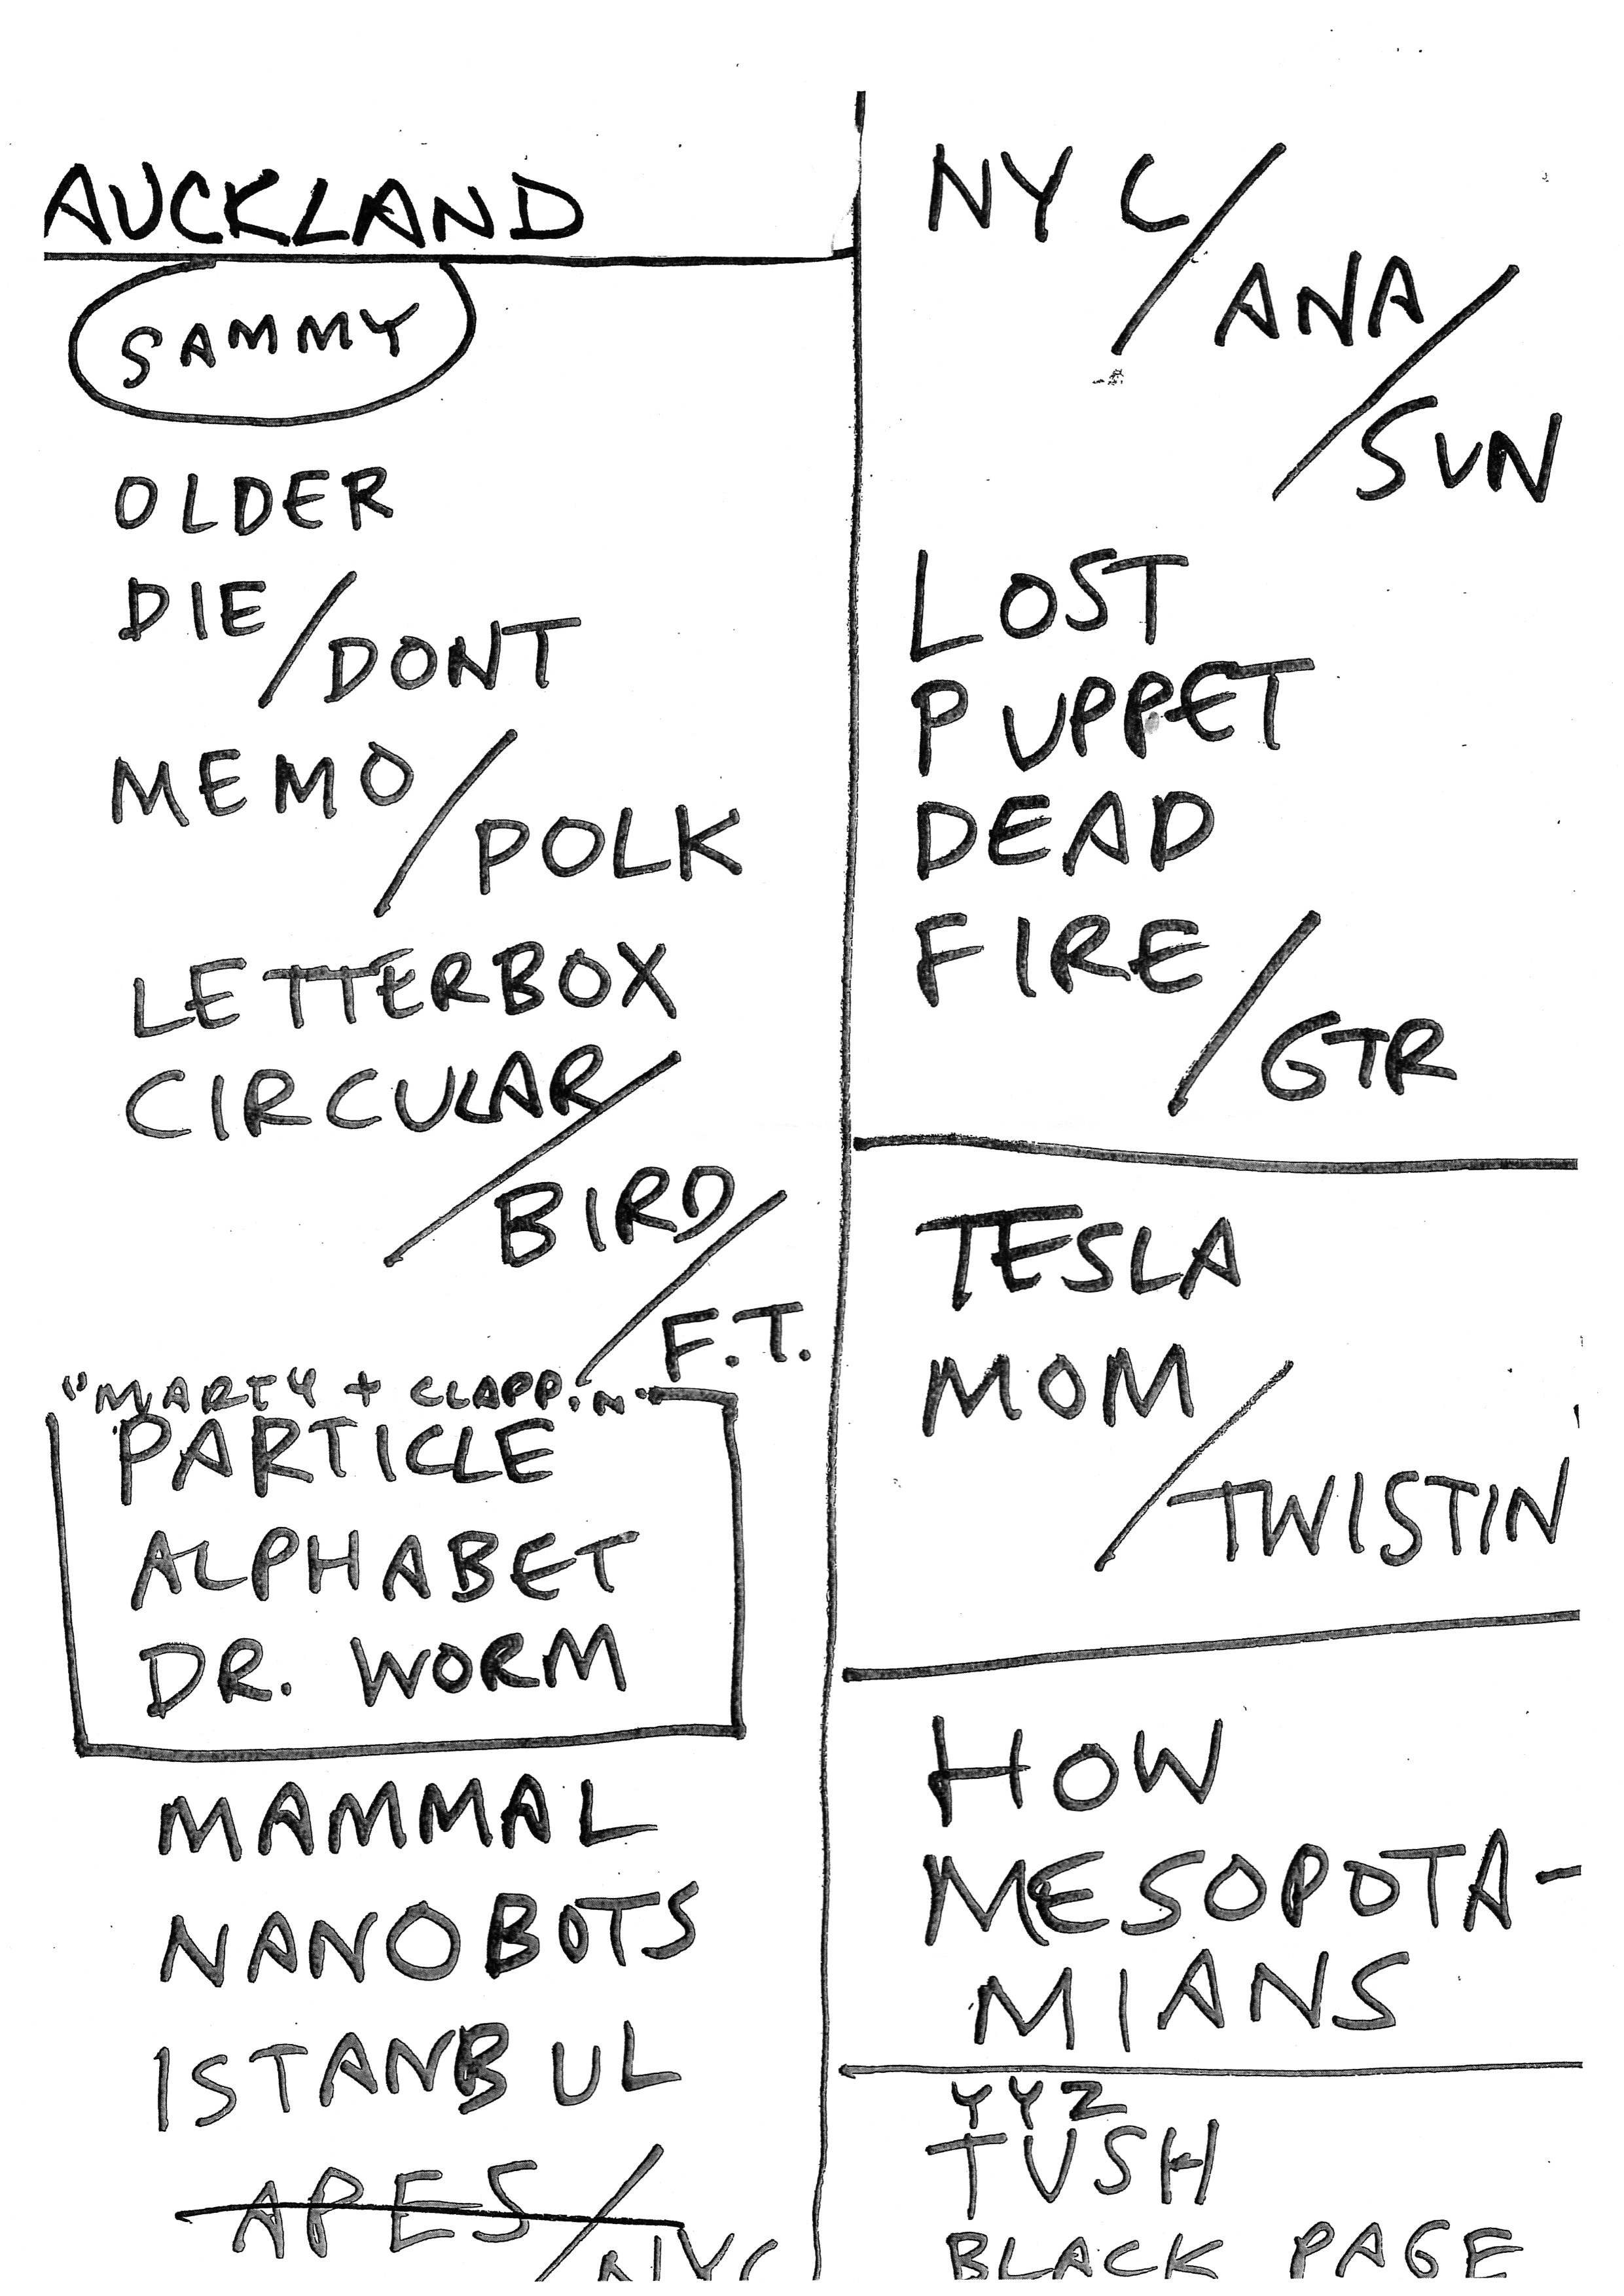 AUCKLAND
SAMMY
OLDER
DIE/DONT
MEMO/POLK
LETTERBOX
CIRCULAR/BIRD/F.T.
"MARTY + CLAPPIN"
PARTICLE
ALPHABET
DR. WORM
MAMMAL
NANOBOTS
ISTANBUL
APES/
NYC/ANA/SUN
LOST
PUPPET
DEAD
FIRE/GTR
TESLA
MOM/TWISTIN
HOW
MESOPOTA-
MIANS
YYZ
TUSH
BLACK PAGE